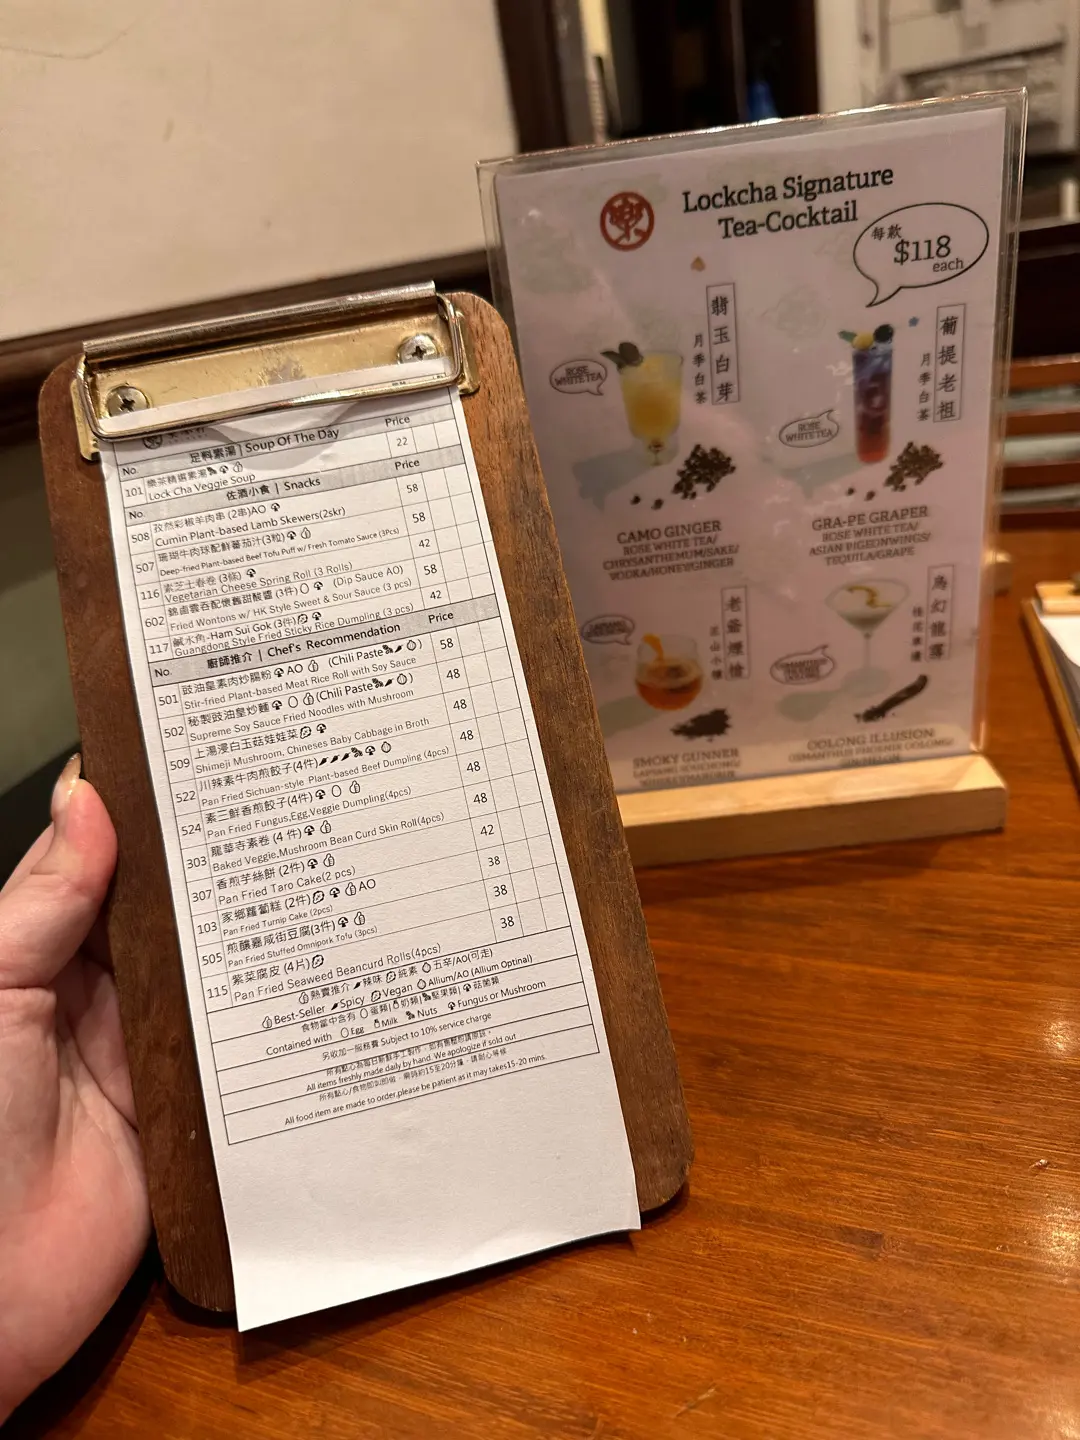 足料素湯 | Soup Of The Day
Price
No.
101
樂茶精選素湯
22
Lock Cha Veggie Soup
No.
佐酒小食 | Snacks
Price
508
孜然彩椒羊肉串 (2串)AO
58
Cumin Plant-based Lamb Skewers(2skr)
507
珊瑚牛肉球配鮮蕃茄汁(3粒)
58
Deep-fried Plant-based Beef Tofu Puff w/ Fresh Tomato Sauce (3Pcs)
116
素芝士春卷 (3條)
42
Vegetarian Cheese Spring Roll (3 Rolls)
602
錦鹵雲吞配懷舊甜酸醬 (3件) (Dip Sauce AO)
58
Fried Wontons w/ HK Style Sweet & Sour Sauce (3 pcs)
117
鹹水角-Ham Sui Gok (3件)
42
Guangdong Style Fried Sticky Rice Dumpling (3 pcs)
No.
廚師推介 | Chef's Recommendation
Price
501
豉油皇素肉炒腸粉 AO (Chili Paste)
58
Stir-fried Plant-based Meat Rice Roll with Soy Sauce
502
秘製豉油皇炒麵 (Chili Paste)
48
Supreme Soy Sauce Fried Noodles with Mushroom
509
上湯浸白玉菇娃娃菜
48
Shimeji Mushroom, Chineses Baby Cabbage in Broth
522
川辣素牛肉煎餃子(4件)
48
Pan Fried Sichuan-style Plant-based Beef Dumpling (4pcs)
524
素三鮮香煎餃子(4件)
48
Pan Fried Fungus,Egg,Veggie Dumpling(4pcs)
303
龍華寺素卷 (4 件)
48
Baked Veggie,Mushroom Bean Curd Skin Roll(4pcs)
307
香煎芋絲餅 (2件)
42
Pan Fried Taro Cake(2 pcs)
103
家鄉蘿蔔糕 (2件) AO
38
Pan Fried Turnip Cake (2pcs)
505
煎釀嘉咸街豆腐(3件)
38
Pan Fried Stuffed Omnipork Tofu (3pcs)
115
紫菜腐皮 (4片)
38
Pan Fried Seaweed Beancurd Rolls(4pcs)
熱賣推介 辣味 純素 五辛/AO(可走)
Best-Seller Spicy Vegan Allium/AO (Allium Optinal)
食物當中含有 蛋類| 奶類| 堅果類| 菇菌類
Contained with Egg Milk Nuts Fungus or Mushroom
另收加一服務費 Subject to 10% service charge
所有點心為每日新鮮手工製作，如有售罄即請原諒。
All items freshly made daily by hand. We apologize if sold out
所有點心/食物即叫即做，需時約15至20分鐘，請耐心等候
All food item are made to order,please be patient as it may takes15-20 mins.
Lockcha Signature
Tea-Cocktail
每款
$118
each
翡玉白芽
月季白茶
ROSE
WHITE TEA
葡提老祖
月季白茶
ROSE
WHITE TEA
CAMO GINGER
ROSE WHITE TEA/
CHRYSANTHEMUM/SAKE/
VODKA/HONEY/GINGER
GRA-PE GRAPER
ROSE WHITE TEA/
ASIAN PIGEONWINGS/
TEQUILA/GRAPE
老爺煙愴
正山小種
烏幻龍露
SMOKY GUNNER
LAPSANG SOUCHONG/
OOLONG ILLUSION
OSMANTHUS PHOENIX OOLONG/